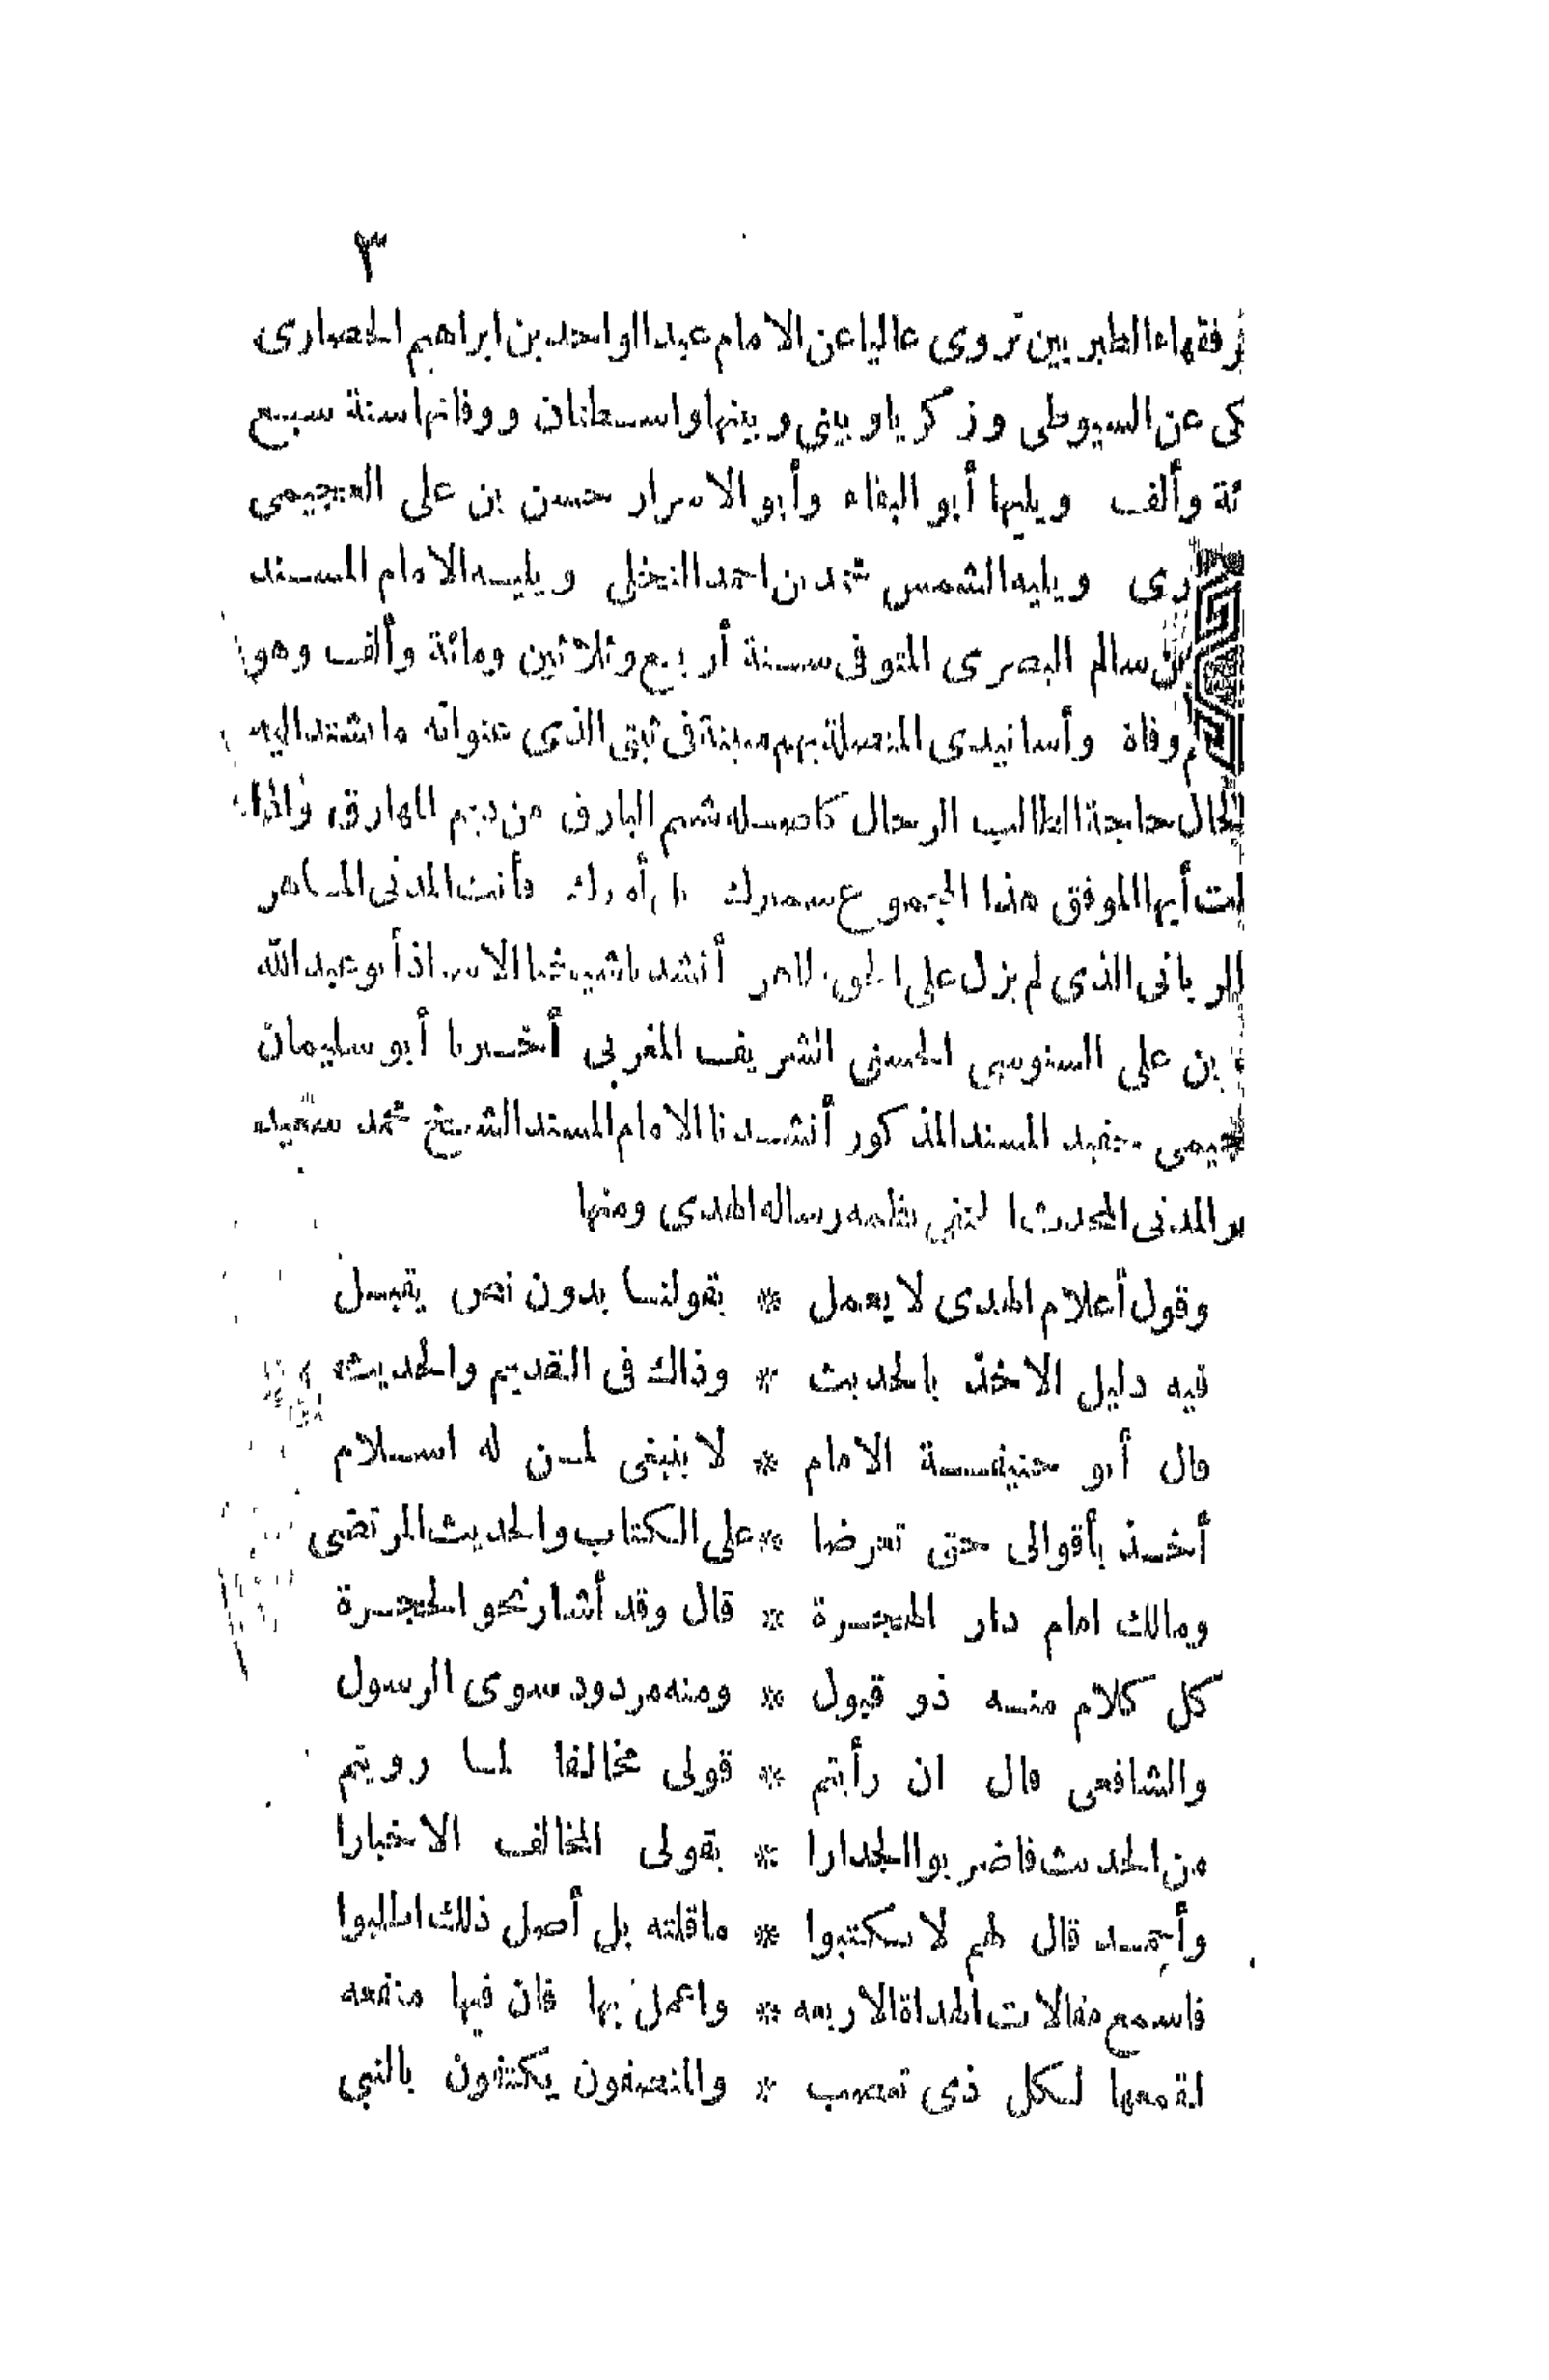 ٣
فقهاء الطبريين تروى عاليا عن الامام عبد الواحد بن ابراهيم الحصارى
عن السيوطى وزكريا وبينى وبينها واسطتان ووفاتها سنة سبع
ئة وألف ويليها أبو البقاء وأبو الاسرار حسن بن على العجيمى
ويليه الشمس محمد بن احمد النخلى ويليه الامام المسند
بن سالم البصرى المتوفى سنة أربع وثلاثين ومائة وألف وهو
وفاة وأسانيدى المتصلة بهم مبينة فى ثبتى الذى عنوانه ما تشتد اليه
حاجة الطالب الرحال كاصله شيم البارق من ديم المهارق
أيها الموفق هذا المجموع فأنت المدنى الماهر
الربانى الذى لم يزل على الحق أنشدنا شيخنا الاستاذ أبو عبد الله
بن على السنوسى الحسنى الشريف المغربى أخبرنا أبو سليمان
حفيد المسند المذكور أنشدنا الامام المسند الشيخ محمد سعيد
المدنى المحدث نظمه رسالة الهدى ومنها
وقول أعلام الهدى لا يعمل * بقولنا بدون نص يقبل
فيه دليل الاخذ بالحديث * وذاك فى القديم والحديث
قال أبو حنيفة الامام * لا ينبغى لمن له اسلام
أخذ بأقوالى حتى تعرضا * على الكتاب والحديث المرتضى
ومالك امام دار الهجرة * قال وقد أشار نحو الحجرة
كل كلام منه ذو قبول * ومنه مردود سوى الرسول
والشافعى قال ان رأيتم * قولى مخالفا لما رويتم
من الحديث فاضربوا الجدارا * بقولى المخالف الاخبارا
وأحمد قال لهم لا تكتبوا * ما قلته بل أصل ذلك اطلبوا
فاسمع مقالات الهداة الاربعه * واعمل بها فان فيها منفعه
لقمعها لكل ذى تعصب * والمنصفون يكتفون بالنبي